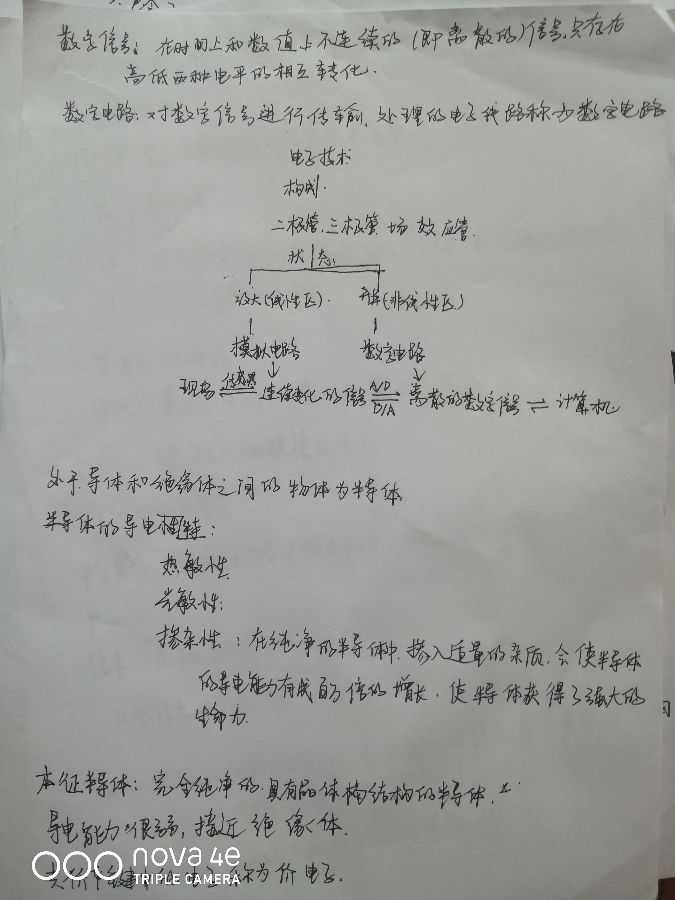 数字信号: 在时间上和数值上不连续的(即离散的)信号,只存在
高低两种电平的相互转化.
数字电路: 对数字信号进行传输、处理的电子线路称为数字电路
电子技术
构成.
二极管,三极管 场效应管.
状态
放大(线性区). 开关(非线性区)
模拟电路 数字电路
现场 传感器 连续变化的信号 A/D D/A 离散的数字信号 ⇌ 计算机
处于导体和绝缘体之间的物体为半导体
半导体的导电性特:
热敏性.
光敏性;
掺杂性: 在纯净的半导体中,掺入适量的杂质,会使半导体
的导电能力有成百万倍的增长.使半导体获得了强大的
生命力.
本征半导体: 完全纯净的.具有晶体格结构的半导体.
导电能力很弱,接近绝缘体.
共价键 称为价电子.
nova 4e
TRIPLE CAMERA